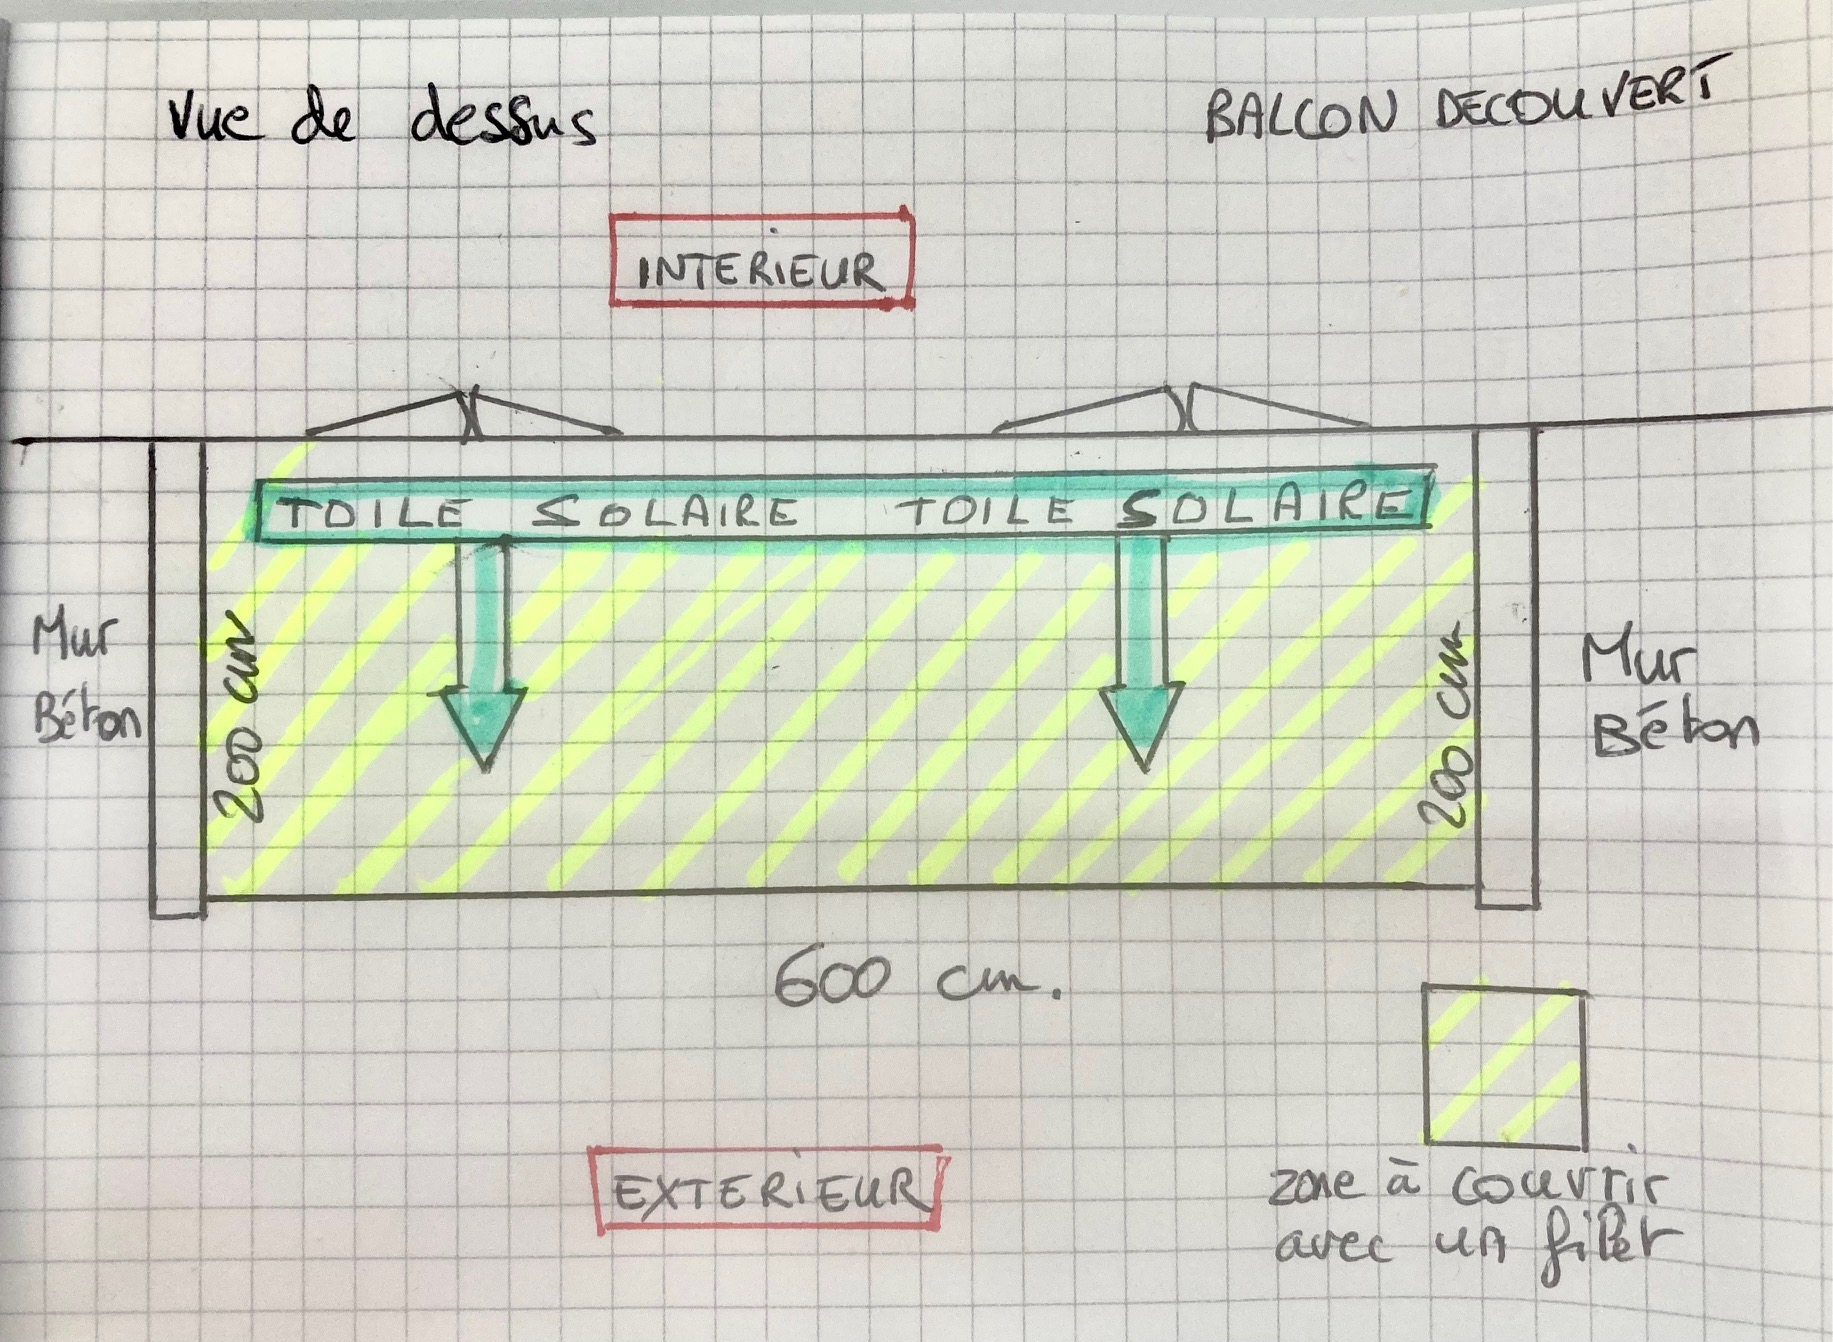 Vue de dessus
BALCON DECOUVERT
INTERIEUR
TOILE SOLAIRE TOILE SOLAIRE
Mur
Béton
200 cm
200 cm
Mur
Béton
600 cm.
EXTERIEUR
zone à couvrir
avec un filet